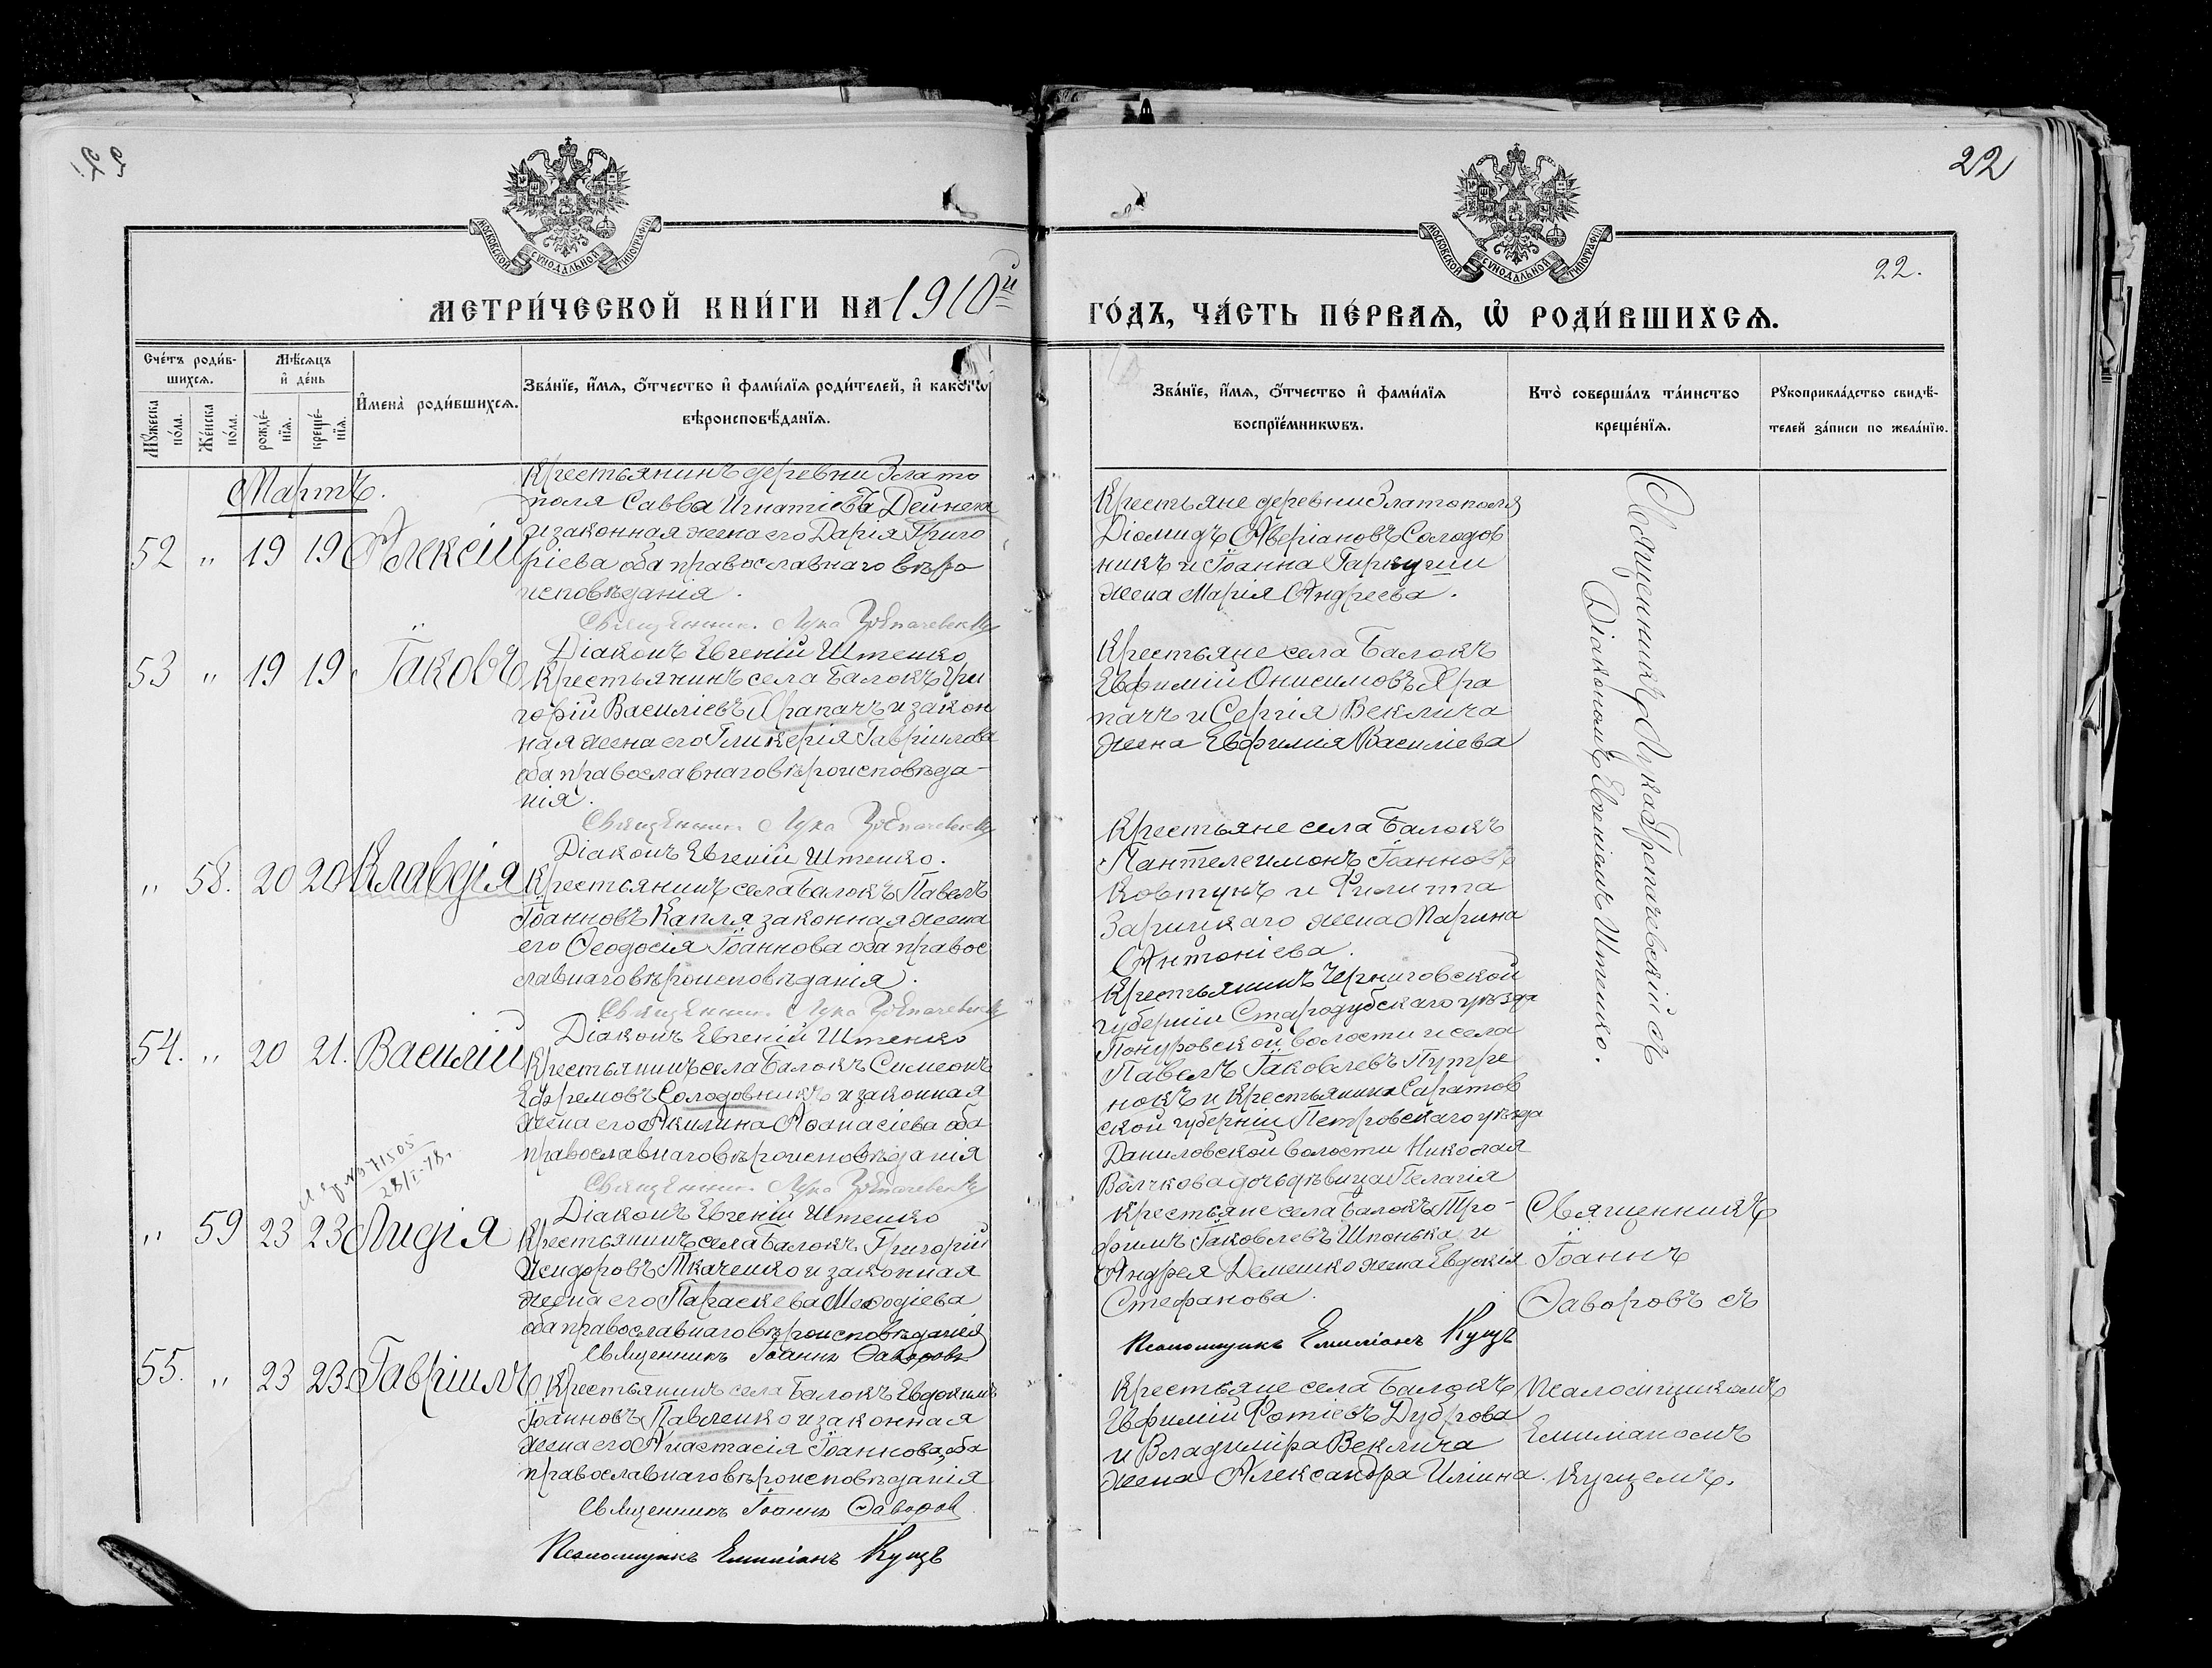 22
МОСКОВСКОЙ СУНОДАЛЬНОЙ ТИПОГРАФІИ
МОСКОВСКОЙ СУНОДАЛЬНОЙ ТИПОГРАФІИ
22.
МЕТРИ́ЧЕСКОЙ КНИ́ГИ НА 1910й
ГО́ДЪ, ЧА́СТЬ ПЕ́РВАЯ, Ѡ҆ РОДИ́ВШИХСЯ.
Сче́тъ роди́в-
шихся.
Мѣ́сяцъ
и҆ де́нь
Мꙋ́жеска по́ла.
Же́нска по́ла.
рожде́-
нїя.
креще́-
нїя.
И҆мена̀ роди́вшихся.
Зва́нїе, и҆́мя, ѻ҆́тчество и҆ фами́лїя роди́телей, и҆ како́гѡ
вѣроисповѣ́данїя.
Зва́нїе, и҆́мя, ѻ҆́тчество и҆ фами́лїя
воспрїе́мникѡвъ.
Кто̀ соверша́лъ та́инство
креще́нїя.
Рꙋкоприкла́дство свидѣ́-
телей за́писи по жела́нїю.
Мартъ.
52 " 19 19 Алексій
Крестьянинъ деревни Злато
поля Савва Игнатіевъ Дейнека
и законная жена его Дарія Григо
ріева оба православнаго вѣро
исповѣданія.
Священник. Лука
Діаконъ Евгеній Штенко
Крестьяне деревни Златополя
Діомидъ Аверіановъ Солодов
никъ и Іоанна Гаркуши
жена Марія Андреева.
53 " 19 19 Іаковъ
Крестьянинъ села Балокъ Гри
горій Василіевъ Храпачъ и закон
ная жена его Гликерія Гавріилова
оба православнаго вѣроисповѣда-
нія.
Священник. Лука
Діаконъ Евгеній Штенко.
Крестьяне села Балокъ
Евфимій Онисимовъ Хра
пачъ и Сергія Веклича
жена Евфимія Василіева
" 58. 20 20 Клавдія
Крестьянинъ села Балокъ Павелъ
Іоанновъ Капля законная жена
его Ѳеодосія Іоаннова оба правос
лавнаго вѣроисповѣданія.
Священник. Лука
Діаконъ Евгеній Штенко
Крестьяне села Балокъ
Пантелеимонъ Іоанновъ
Ковтунъ и Филиппа
Зарицкаго жена Марина
Антоніева.
54. " 20 21. Василій
Крестьянинъ села Балокъ Симеонъ
Ефремовъ Солодовникъ и законная
жена его Акилина Аѳанасіева оба
православнаго вѣроисповѣданія
Священник. Лука
Діаконъ Евгеній Штенко
Крестьянинъ Черниговской
губерніи Стародубскаго уѣзда
Понуровской волости и села
Павелъ Іаковлевъ Путре
нокъ и крестьянина Саратов
ской губерніи Петровскаго уѣзда
Даниловской волости Николая
Волчкова дочь дѣвица Пелагія
Священникъ Лука Грепачевскій съ
Діакономъ Евгеніемъ Штенко.
28/I-78.
" 59 23 23 Лидія
Крестьянинъ села Балокъ Григорій
Исидоровъ Ткаченко и законная
жена его Параскева Меѳодіева
оба православнаго вѣроисповѣданія
Священникъ Іоаннъ Ѳаворовъ
Крестьяне села Балокъ Тро-
фимъ Іаковлевъ Шпонька и
Андрея Демешко жена Евдокія
Стефанова.
Псаломщикъ Емиліанъ Кущъ
Священникъ
Іоаннъ
Ѳаворовъ съ
55. " 23 23. Гавріилъ
Крестьянинъ села Балокъ Евдокимъ
Іоанновъ Павленко и законная
жена его Анастасія Іоаннова, оба
православнаго вѣроисповѣданія
Священникъ Іоаннъ Ѳаворов
Псаломщикъ Емиліанъ Кущъ
Крестьяне села Балокъ
Евфимій Фотіевъ Дуброва
и Владиміра Веклича
жена Александра Иліина.
Псаломщикомъ
Емиліаномъ
Кущемъ.